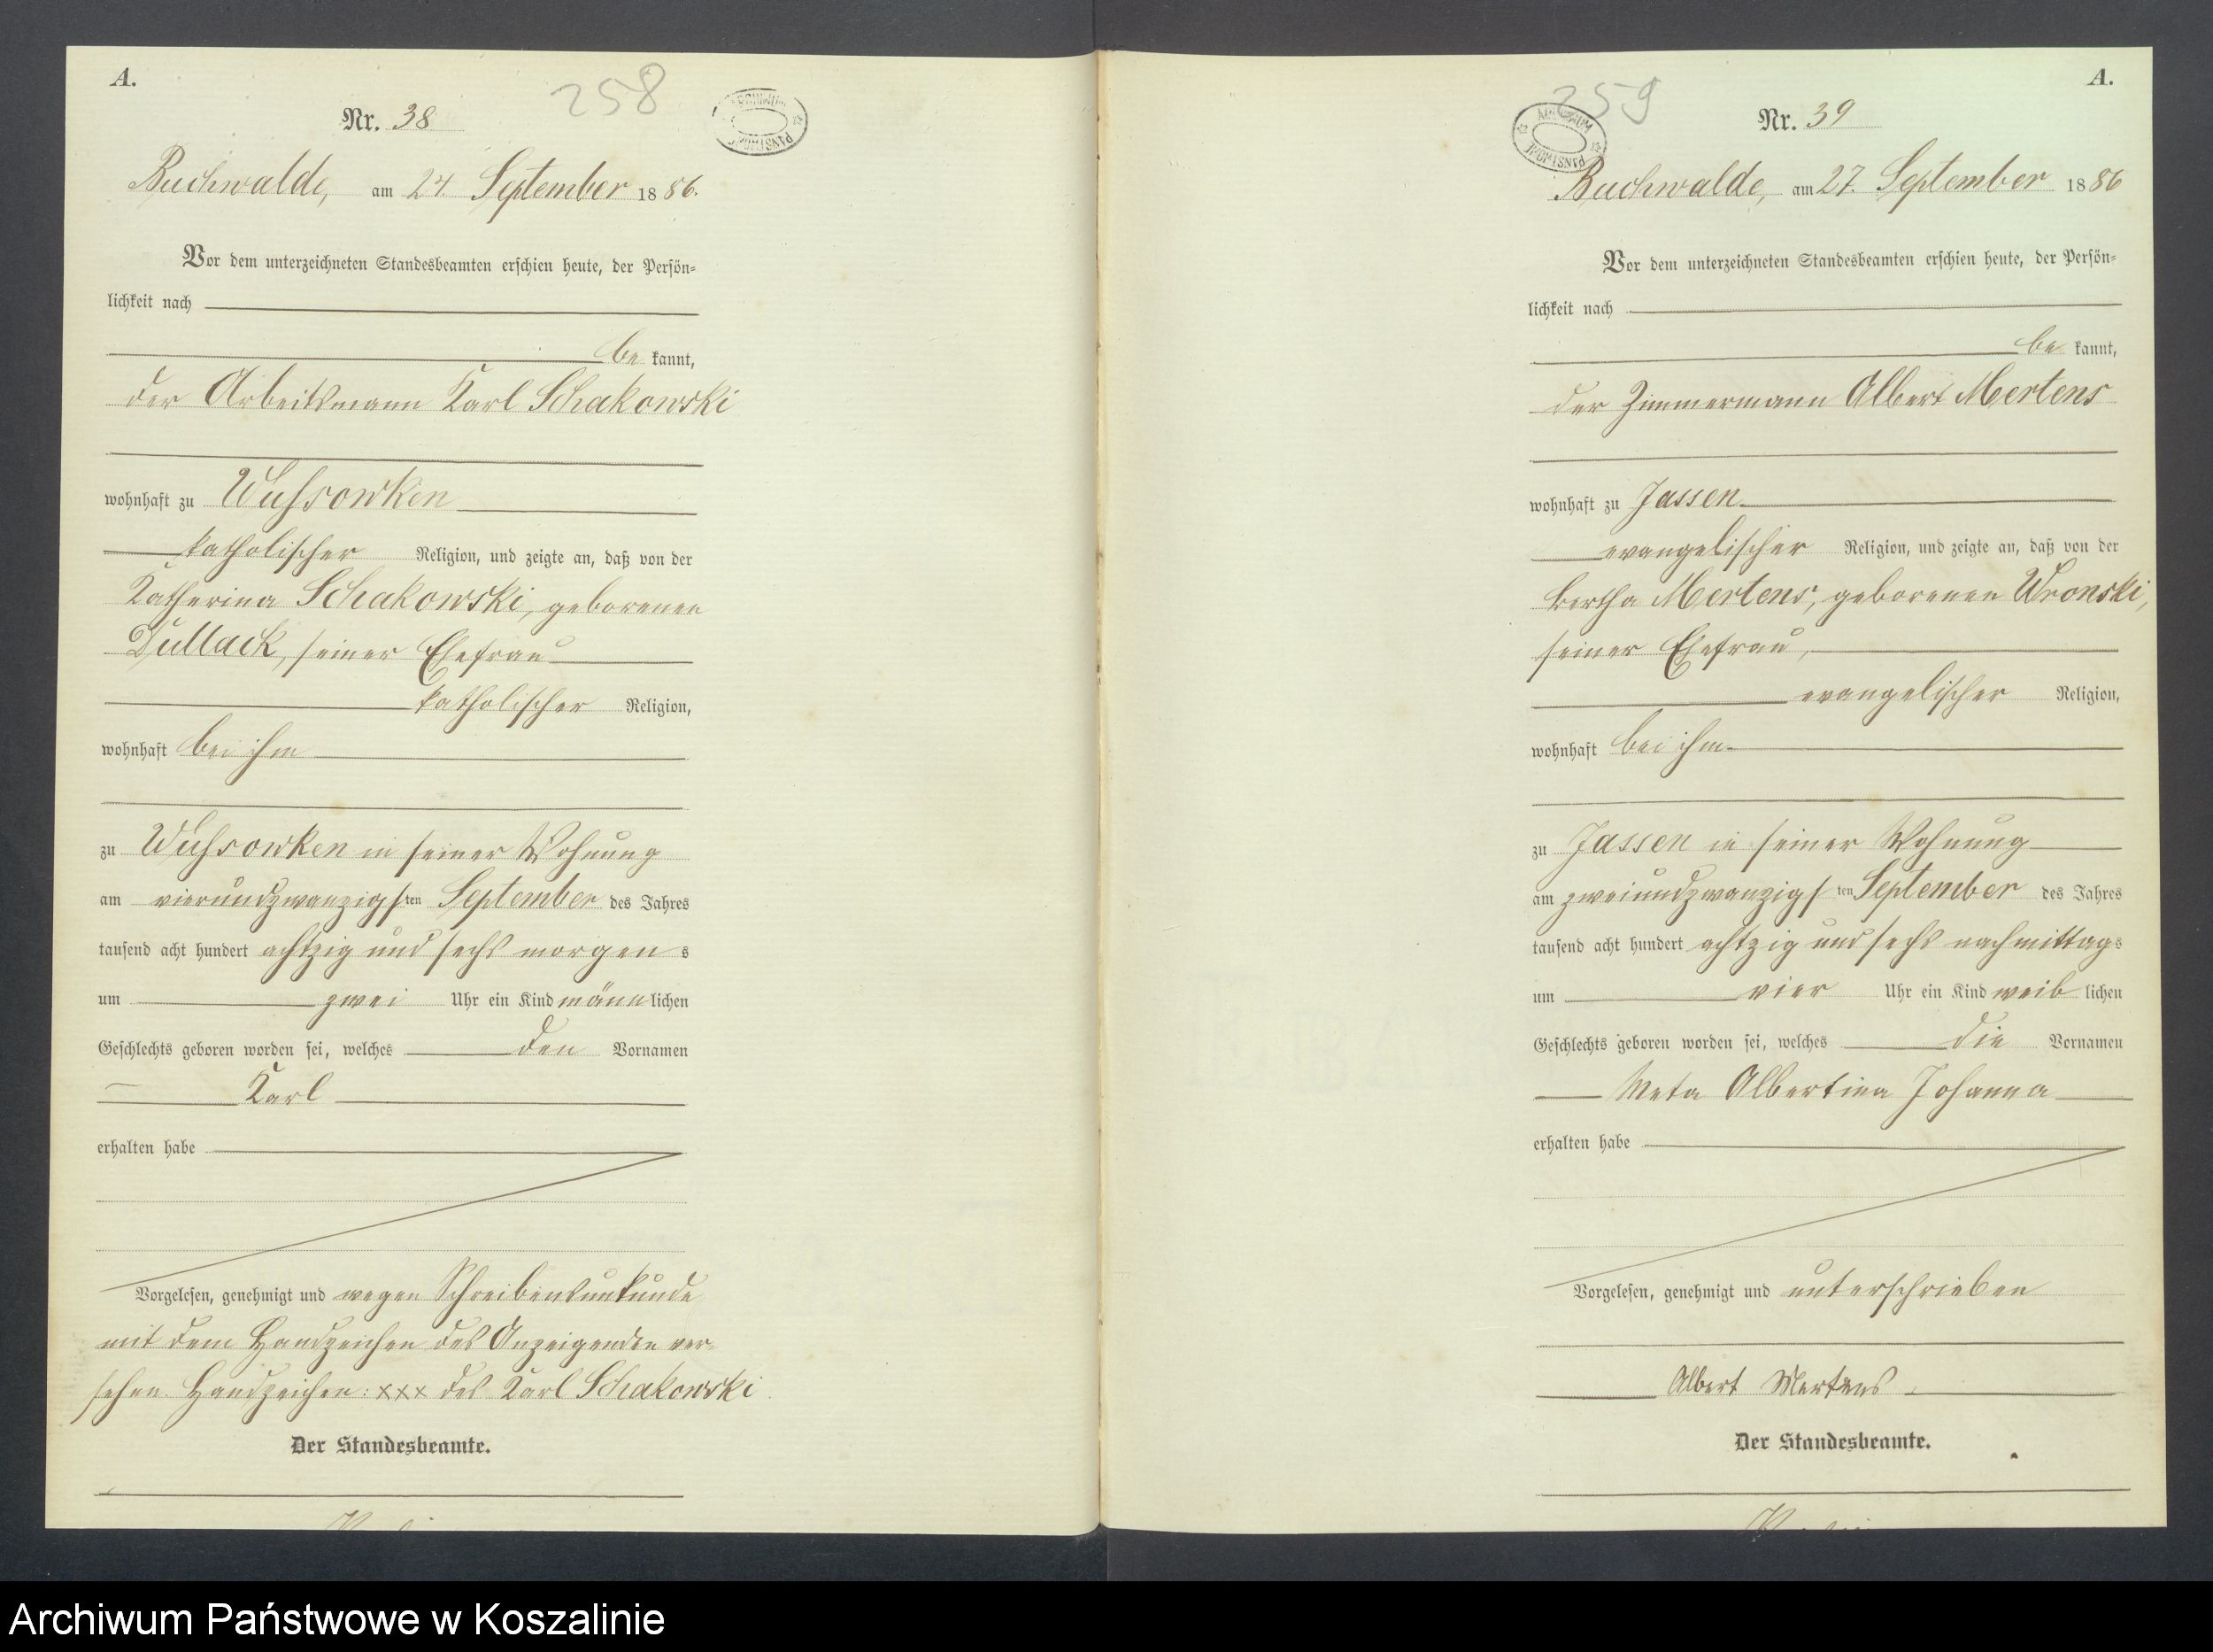 A.
258
Nr. 38
Buchwalde, am 24. September 1886.
Vor dem unterzeichneten Standesbeamten erschien heute, der Persön-
lichkeit nach
be kannt,
der Arbeitsmann Karl Schakowski
wohnhaft zu Wussowken
katholischer Religion, und zeigte an, daß von der
Katharina Schakowski, geborenen
Dullack, seiner Ehefrau
katholischer Religion,
wohnhaft bei ihm
zu Wussowken in seiner Wohnung
am vierundzwanzigsten September des Jahres
tausend acht hundert achtzig und sechs morgens
um zwei Uhr ein Kind männlichen
Geschlechts geboren worden sei, welches den Vornamen
Karl
erhalten habe
Vorgelesen, genehmigt und wegen Schreibensunkunde
mit dem Handzeichen des Anzeigenden ver-
sehen. Handzeichen: xxx des Karl Schakowski.
Der Standesbeamte.
A.
259
Nr. 39
ARCHIWUM PAŃSTWOWE
Buchwalde, am 27. September 1886
Vor dem unterzeichneten Standesbeamten erschien heute, der Persön-
lichkeit nach
be kannt,
der Zimmermann Albert Mertens
wohnhaft zu Jassen
evangelischer Religion, und zeigte an, daß von der
Bertha Mertens, geborenen Wronski,
seiner Ehefrau,
evangelischer Religion,
wohnhaft bei ihm
zu Jassen in seiner Wohnung
am zweiundzwanzigsten September des Jahres
tausend acht hundert achtzig und sechs nachmittags
um vier Uhr ein Kind weiblichen
Geschlechts geboren worden sei, welches die Vornamen
Meta Albertina Johanna
erhalten habe
Vorgelesen, genehmigt und unterschrieben
Albert Mertens
Der Standesbeamte.
Archiwum Państwowe w Koszalinie